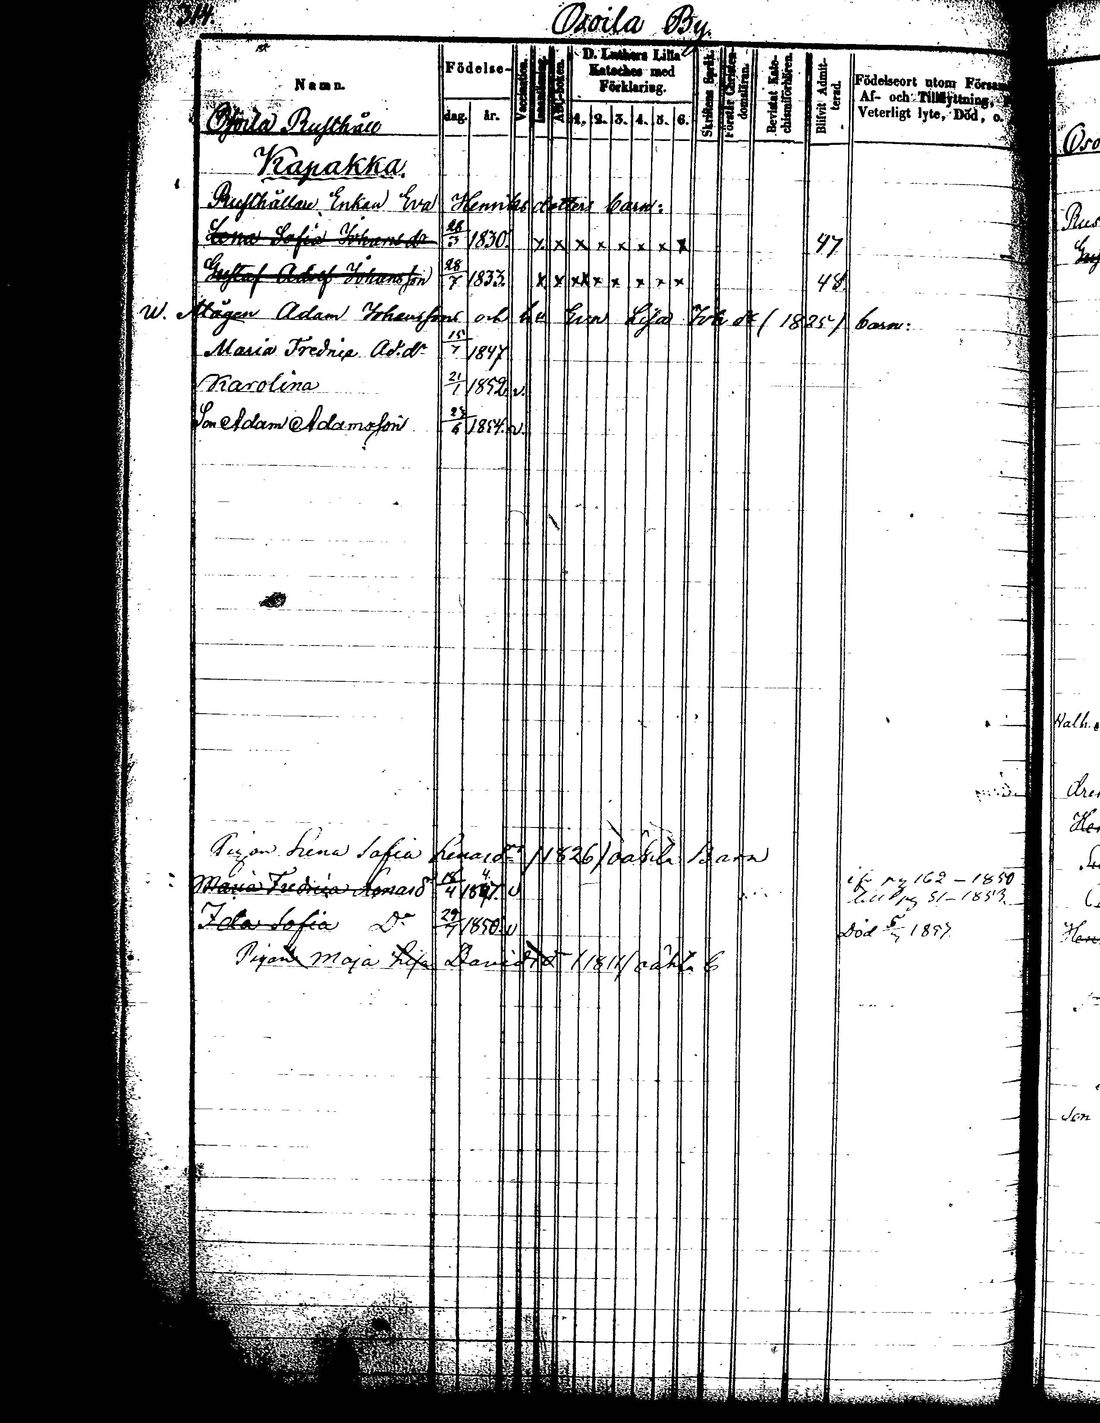 314.
Osoila By.
Namn.
Födelse-
dag. år.
Vaccination.
Innanläsning.
ABC-boken.
D. Luthers Lilla
Kateches med
Förklaring.
1. 2. 3. 4. 5. 6.
Skriftens Språk.
Förstår Christen-
domsläran.
Bevistat Kate-
chismiförhören.
Blifvit Admit-
terad.
Födelseort utom Försam
Af- och Tillflyttning,
Veterligt lyte, Död, o.
Osoila Rusthåll
Kapakka.
Rusthållare Enkan Eva Henriksdotters barn:
Lena Sofia Johansdr 28/3 1830. x x x x x x x x 47
Gustaf Adolf Johansson 28/7 1833. x x x x x x x x 48
w. Mågen Adam Johansson och hu Eva Lisa Joh dr (1825) barn:
Maria Fredrica Ad.dr 15/7 1847
Karolina 21/1 1852 v.
Son Adam Adamsson 23/6 1854. v.
Pigan Lena Sofia Lenasdr (1826) oäkta Barn
Maria Fredrica Lenasd 18/4 1847. v
ifr pg 162 - 1850
till pg 51 - 1853.
Ida Sofia Dr 29/7 1850 v Död 5/7 1857
Pigans Maja Lisa Davidsd (1811) oäkta b
Oso
Rus
Gus
Halh.
Son